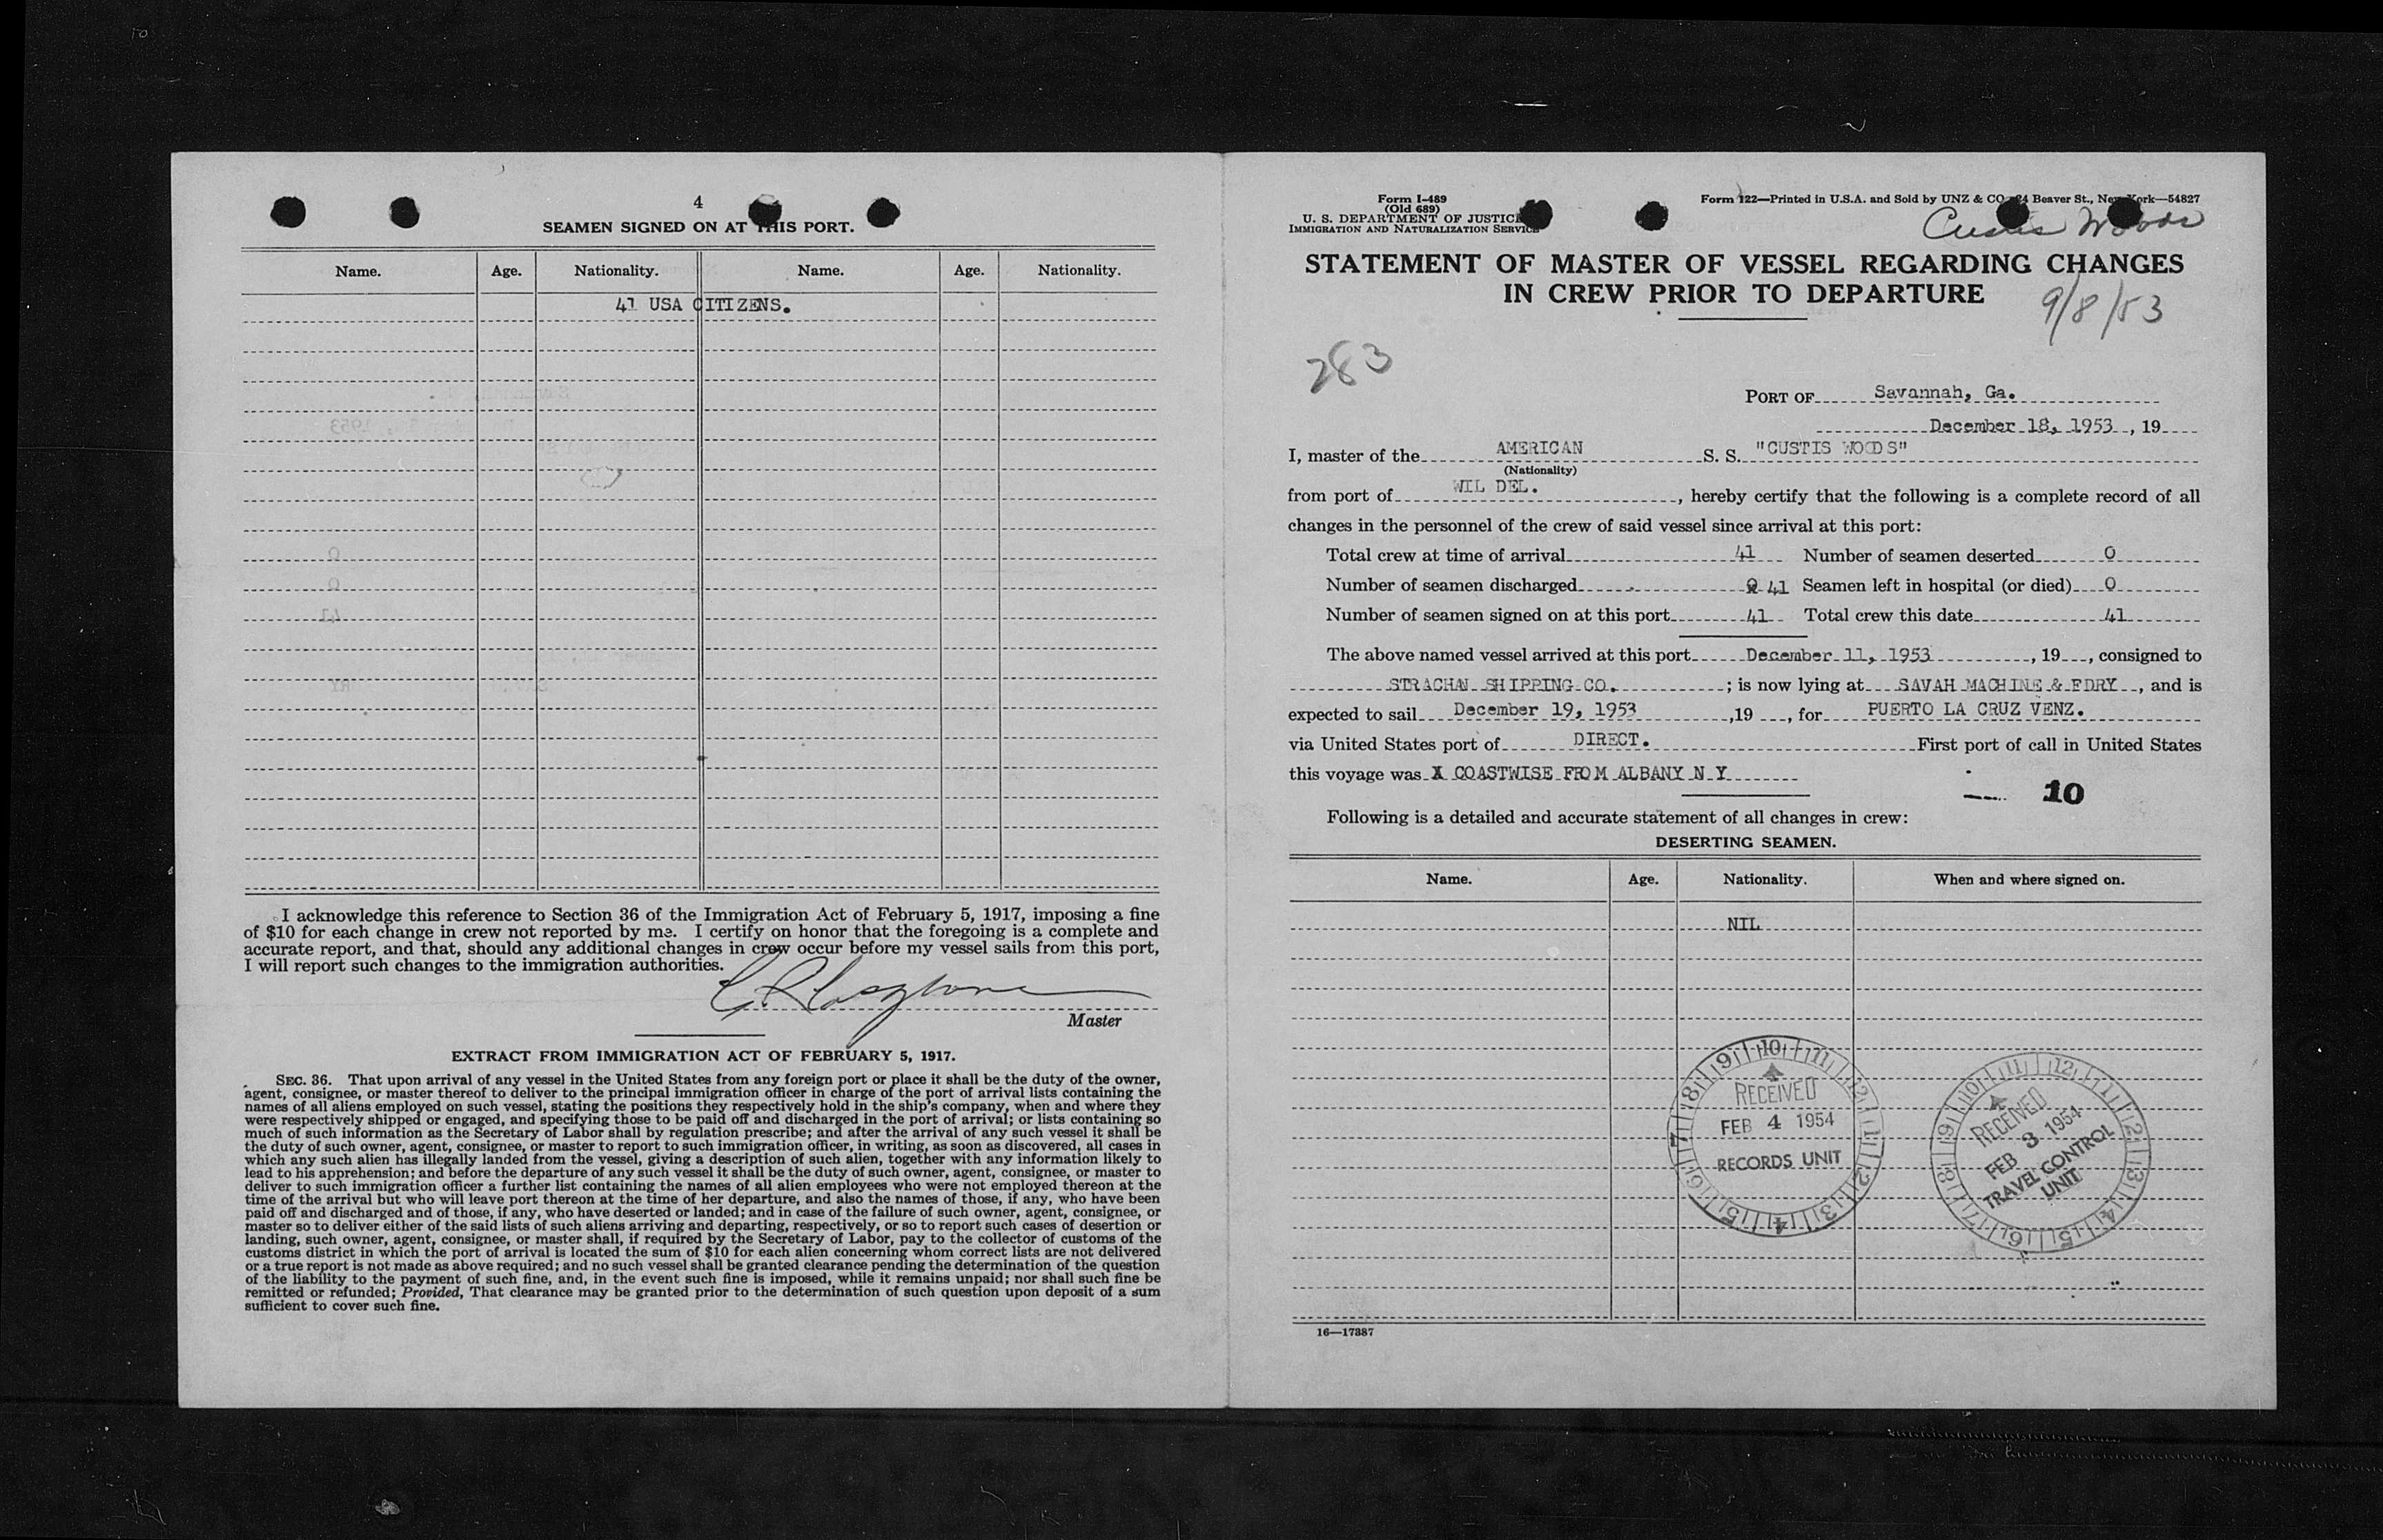 4
SEAMEN SIGNED ON AT THIS PORT.
Name. Age. Nationality. Name. Age. Nationality.
41 USA CITIZENS.
I acknowledge this reference to Section 36 of the Immigration Act of February 5, 1917, imposing a fine
of $10 for each change in crew not reported by me. I certify on honor that the foregoing is a complete and
accurate report, and that, should any additional changes in crew occur before my vessel sails from this port,
I will report such changes to the immigration authorities.
Master
EXTRACT FROM IMMIGRATION ACT OF FEBRUARY 5, 1917.
SEC. 36. That upon arrival of any vessel in the United States from any foreign port or place it shall be the duty of the owner,
agent, consignee, or master thereof to deliver to the principal immigration officer in charge of the port of arrival lists containing the
names of all aliens employed on such vessel, stating the positions they respectively hold in the ship's company, when and where they
were respectively shipped or engaged, and specifying those to be paid off and discharged in the port of arrival; or lists containing so
much of such information as the Secretary of Labor shall by regulation prescribe; and after the arrival of any such vessel it shall be
the duty of such owner, agent, consignee, or master to report to such immigration officer, in writing, as soon as discovered, all cases in
which any such alien has illegally landed from the vessel, giving a description of such alien, together with any information likely to
lead to his apprehension; and before the departure of any such vessel it shall be the duty of such owner, agent, consignee, or master to
deliver to such immigration officer a further list containing the names of all alien employees who were not employed thereon at the
time of the arrival but who will leave port thereon at the time of her departure, and also the names of those, if any, who have been
paid off and discharged and of those, if any, who have deserted or landed; and in case of the failure of such owner, agent, consignee, or
master so to deliver either of the said lists of such aliens arriving and departing, respectively, or so to report such cases of desertion or
landing, such owner, agent, consignee, or master shall, if required by the Secretary of Labor, pay to the collector of customs of the
customs district in which the port of arrival is located the sum of $10 for each alien concerning whom correct lists are not delivered
or a true report is not made as above required; and no such vessel shall be granted clearance pending the determination of the question
of the liability to the payment of such fine, and, in the event such fine is imposed, while it remains unpaid; nor shall such fine be
remitted or refunded; Provided, That clearance may be granted prior to the determination of such question upon deposit of a sum
sufficient to cover such fine.
Form I-489
(Old 689)
U. S. DEPARTMENT OF JUSTICE
IMMIGRATION AND NATURALIZATION SERVICE
Form 122—Printed in U.S.A. and Sold by UNZ & CO 24 Beaver St., New York—54827
Custis Woods
STATEMENT OF MASTER OF VESSEL REGARDING CHANGES
IN CREW PRIOR TO DEPARTURE
9/8/53
283
PORT OF Savannah, Ga.
December 18, 1953, 19
I, master of the AMERICAN S. S. "CUSTIS WOODS"
(Nationality)
from port of WIL DEL. , hereby certify that the following is a complete record of all
changes in the personnel of the crew of said vessel since arrival at this port:
Total crew at time of arrival 41 Number of seamen deserted 0
Number of seamen discharged 0 41 Seamen left in hospital (or died) 0
Number of seamen signed on at this port 41 Total crew this date 41
The above named vessel arrived at this port December 11, 1953 , 19 , consigned to
STRACHAN SHIPPING CO. ; is now lying at SAVAH MACHINE & FDRY , and is
expected to sail December 19, 1953 ,19 , for PUERTO LA CRUZ VENZ.
via United States port of DIRECT. First port of call in United States
this voyage was X COASTWISE FROM ALBANY N Y
10
Following is a detailed and accurate statement of all changes in crew:
DESERTING SEAMEN.
Name. Age. Nationality. When and where signed on.
NIL
9 10 11 12 1 2 3 4 5 6 7 8
RECEIVED
FEB 4 1954
RECORDS UNIT
10 11 12 1 2 3 4 5 6 7 8 9
RECEIVED
FEB 3 1954
TRAVEL CONTROL
UNIT
16—17387